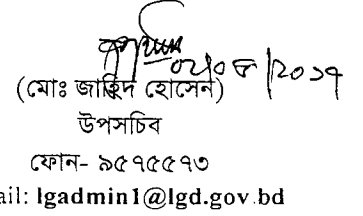 ০২/০৮/২০১৭
(মোঃ জাহিদ হোসেন)
উপসচিব
ফোন- ৯৫৭৫৫৭৩
ail: lgadmin1@lgd.gov.bd